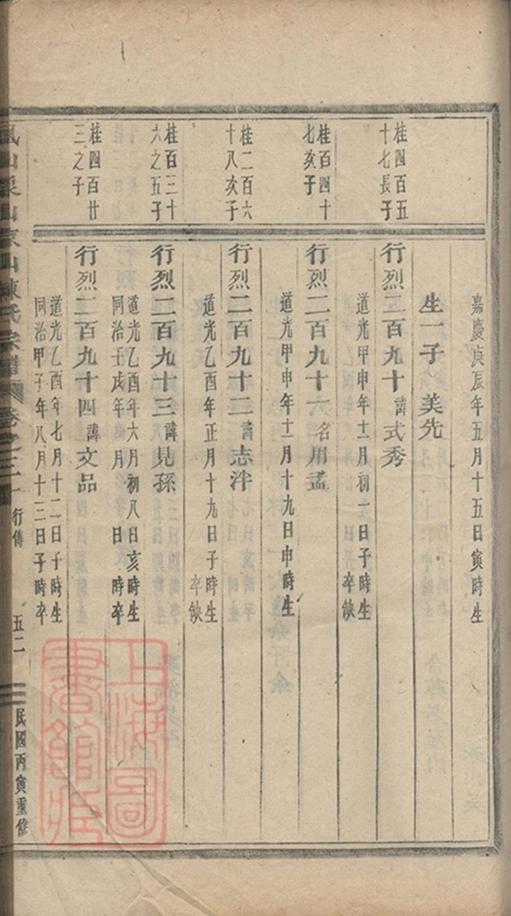 嘉慶庚辰年五月十五日寅時生
生一子 美先
桂四百五
十七長子
行烈二百九十諱式秀
道光甲申年十二月初 日子時生
卒缺
桂百四十
七亥子
行烈二百九十六名用孟
道光甲申年十二月十九日申時生
桂二百六
十八亥子
行烈二百九十二諱志泮
道光乙酉年正月十九日子時生
卒缺
桂百三十
六之五子
行烈二百九十三諱見孫
道光乙酉年六月初八日亥時生
同治壬戌年 月 日 時卒
桂四百廿
三之子
行烈二百九十四諱文品
道光乙酉年七月十二日子時生
同治甲子年八月十三日子時卒
山 山 山陳氏宗譜
卷之三
行傳
五二
民國丙寅重修
上海圖
書館藏